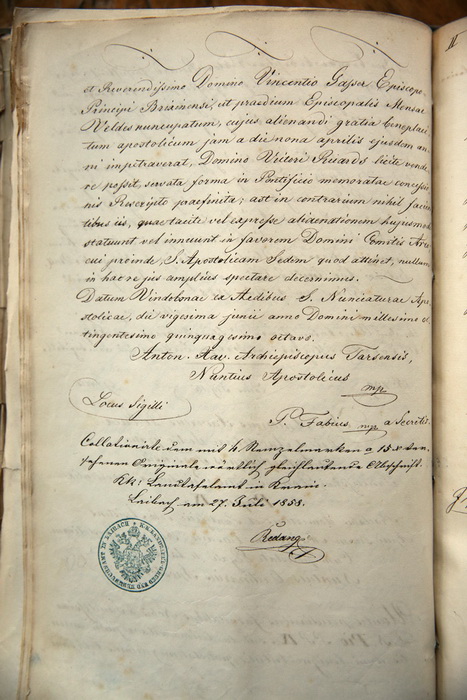 et Reverendissimo Domino Vincentio Gasser Episcopo,
Principi Brixinensi, ut praedium Episcopalis Mensae
Veldes nuncupatum, cujus alienandi gratia beneplaci-
tum apostolicum jam a die nona aprilis ejusdem an-
ni impetraverat, Domino Victori Ruard licite vende-
re possit, servata forma in Pontificio memoratae concessio
nis Rescripto praefinita; ast in contrarium nihil facien
tibus iis, quae tacite vel expresse alienationem hujusmo
statuunt vel innuunt in favorem Domini Comitis
cui proinde S. Apostolicam Sedem quod attinet, nullum
in hac re jus amplius spectare decernimus.
Datum Vindobonae ex Aedibus S. Nunciaturae Apo
stolicae, die vigesima junii anno Domini millesimo o
tingentesimo quinquagesimo octavo.
Anton. Xav. Archiepiscopus Tarsensis,
Nuntius Apostolicus
mp
Locus Sigilli
P. Fabius mp a Secretis
Collationirt dem mit 4. Stempelmarken a 15 x ver-
sehenen Originale wörtlich gleichlautende Abschrift.
Kk: Landtafelamt in Krain.
Laibach am 27. Juli 1858.